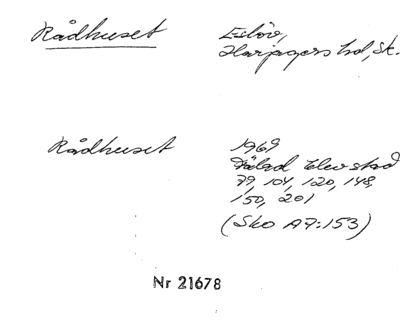 Rådhuset
Eslöv,
Harjagers hd, Sk.
Rådhuset
1969
Fälad Elevstad
79, 104, 120, 148,
150, 201
(Sko A7:153)
Nr 21678